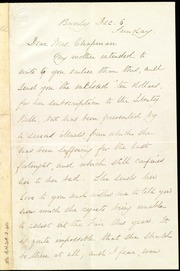 Beverly Dec. 6
Sunday
Dear Mrs. Chapman
My mother intended to
write to you earlier than this, and
send you the enclosed ten dollars,
for her subscription to the Liberty
Bell, but has been prevented by
a severe illness from which she
has been suffering for the last
fortnight, and which still confines
her to her bed. She sends her
love to you and wishes me to tell you
how much she regrets being unable
to assist at the Fair this year. It
is quite impossible that she should
be there at all, and I fear, even